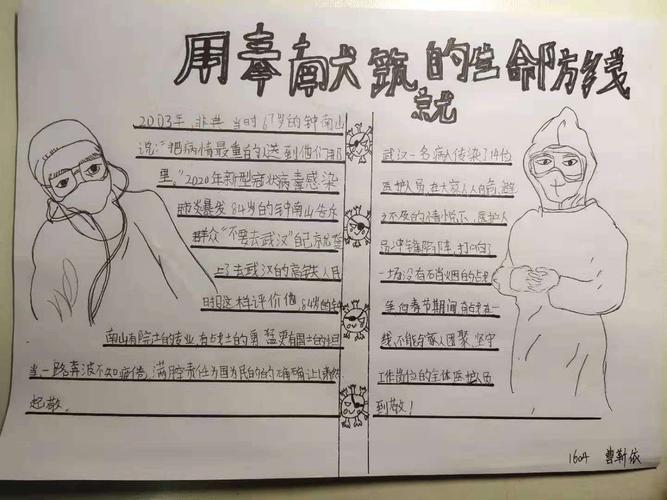 用奉献筑的生命防线
就
2003年,非典 当时67岁的钟南山
说:"把病情最重的人送到俺们那
里。"2020年新型冠状病毒感染
肺炎暴发 84岁的钟南山告示
群众"不要去武汉"自己就登
上了去武汉的高铁 人民
时报这样评价他,84岁的钟
南山有院士的专业,有战士的勇猛更有国士的担
当一路奔波不知疲倦,满腔责任为国为民的的确确让人肃然
起敬。
武汉一名病人传染了14位
医护人员,在大家人人自危,避
之不及的情况下,医护人
员冲锋陷阵,打响了
一场没有硝烟的战
争 春节期间奋战在一
线,不能与家人团聚,坚守
工作岗位的全体医护人员
到敬!
1604 曹靳依